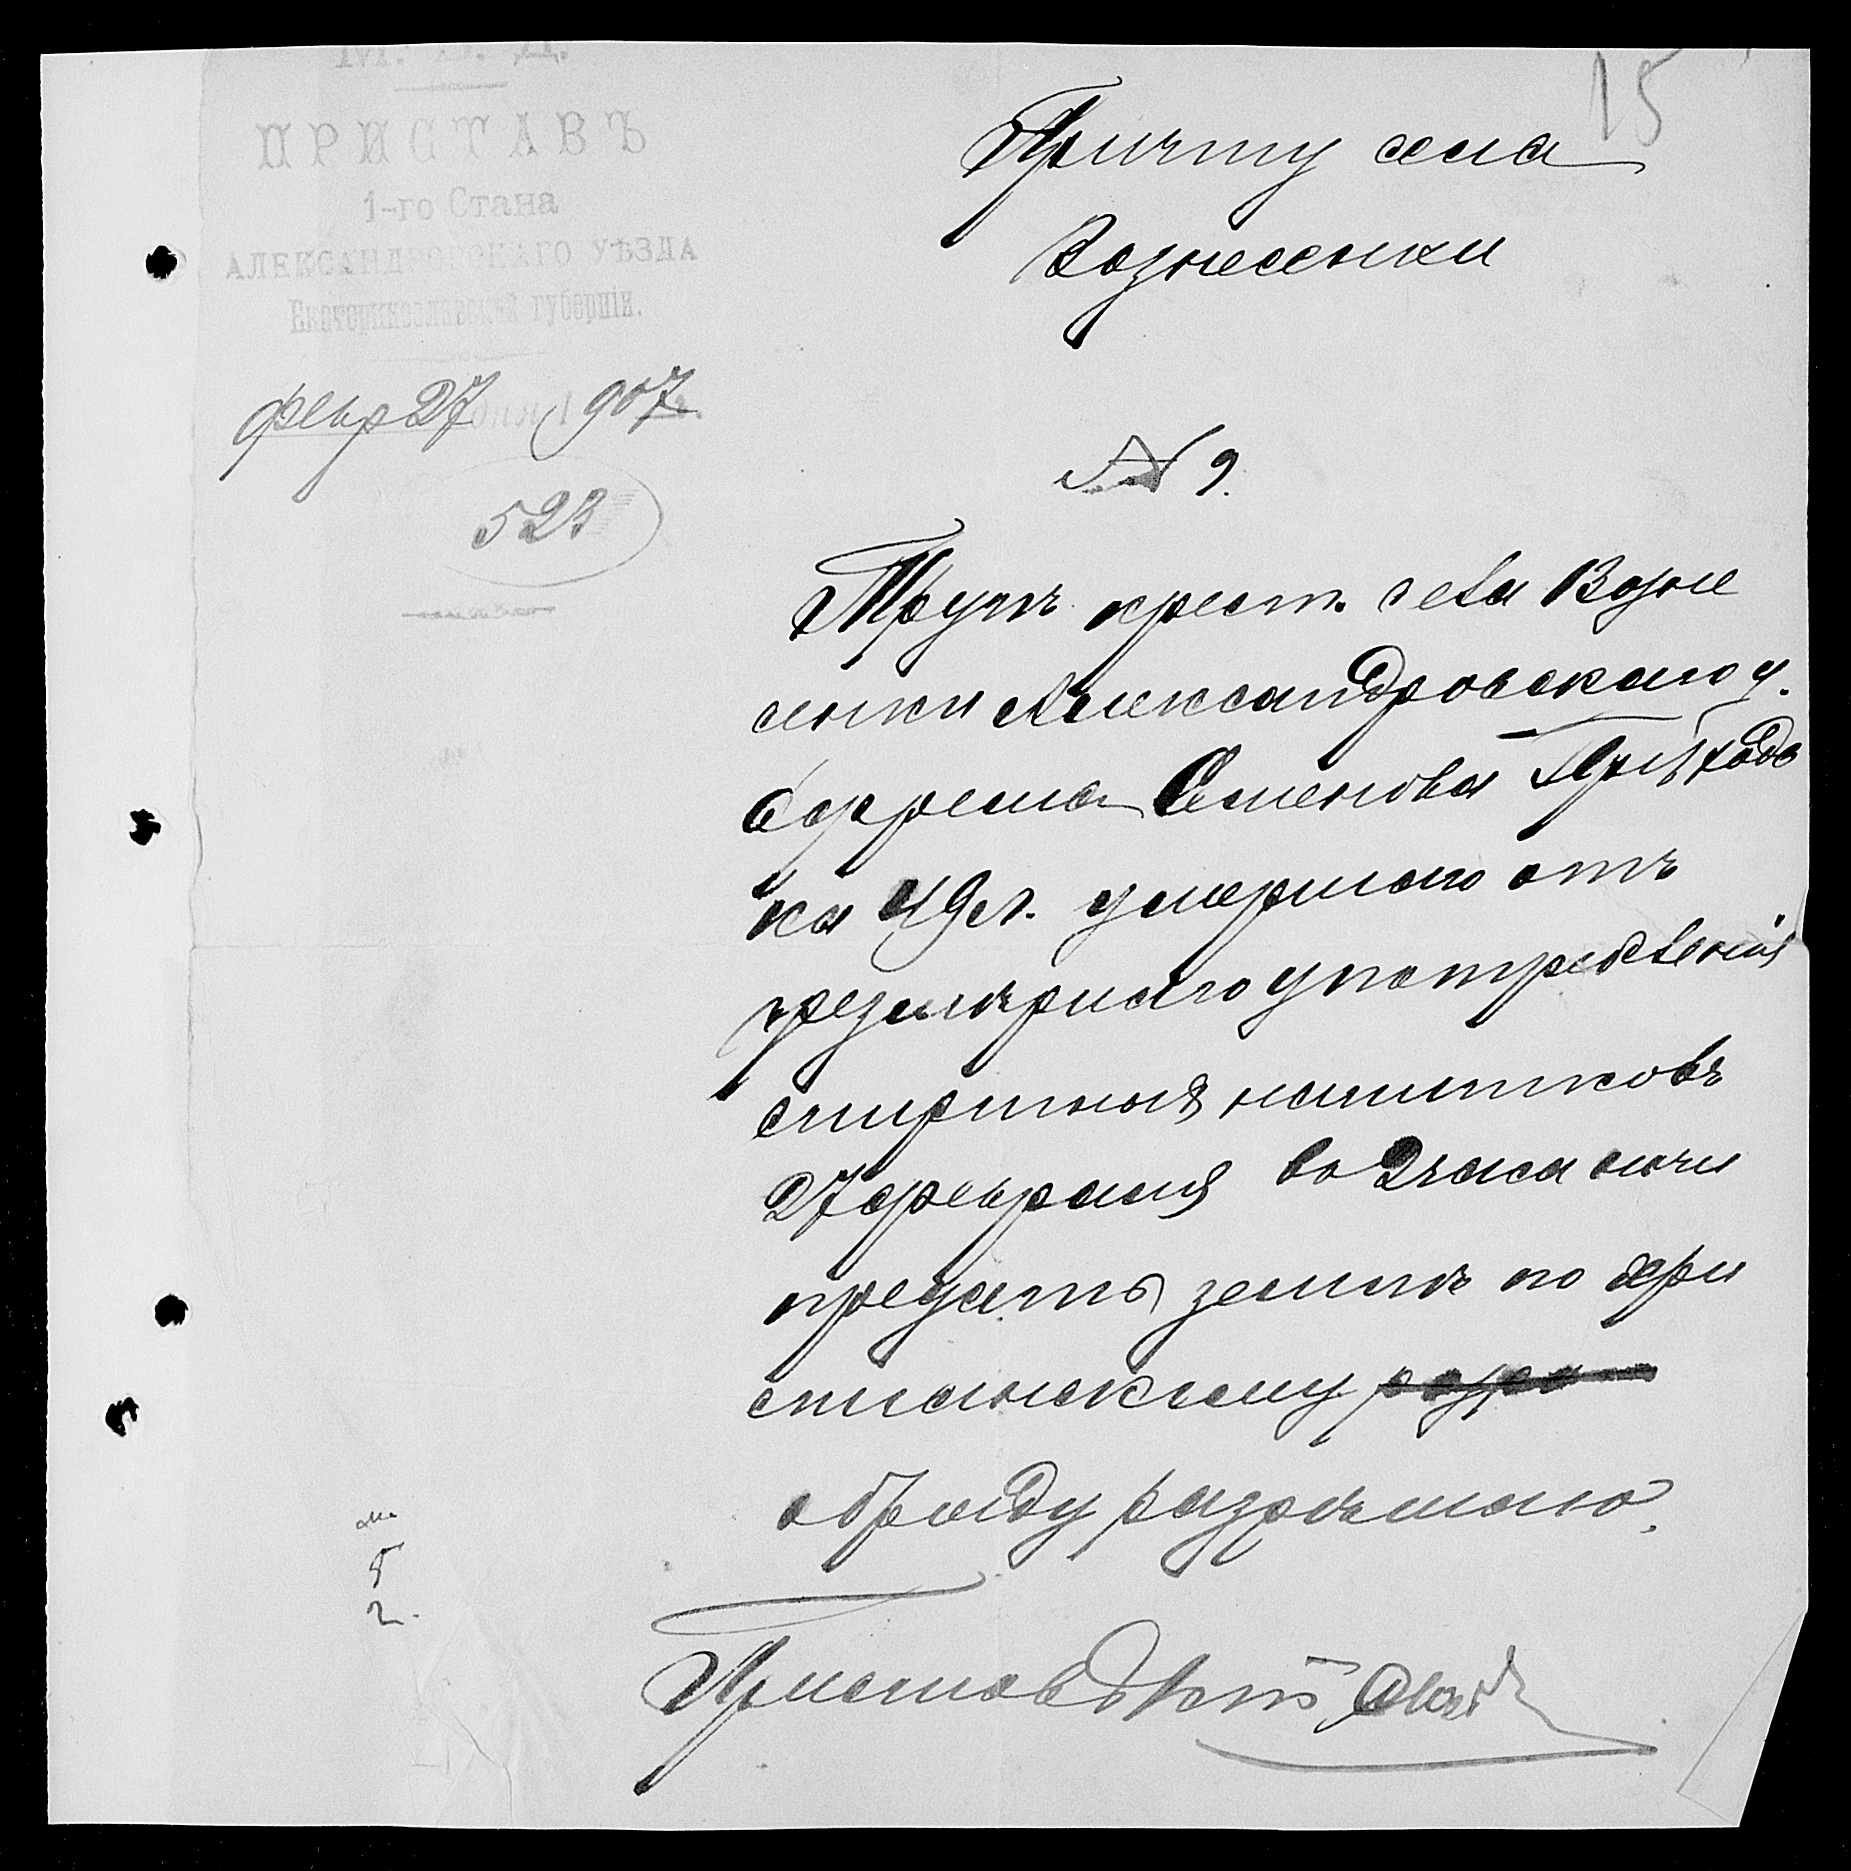 М. В. Д.
ПРИСТАВЪ
1-го Стана
АЛЕКСАНДРОВСКАГО УѢЗДА
Екатеринославской губерніи.
февр 27 дня 1907 г.
523
15
Причту села
Вознесенки
№ 9.
Трупъ крест. села Возне
сенки Александровскаго у.
Ефрема Семенова Приходь
ка 49 л. умершаго отъ
чрезмѣрнаго употребленія
спиртныхъ напитковъ
27 февраля во 2 часа ночи
предать землѣ по хри
стіанскому разрѣ
обряду разрѣшаю.
Приставъ